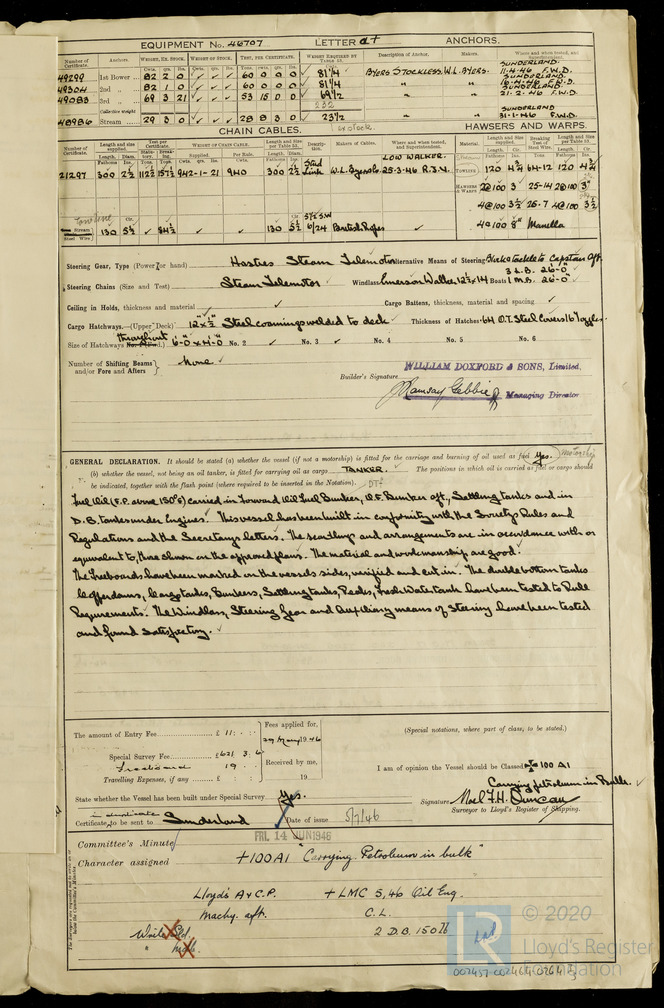 EQUIPMENT No. 46707 LETTER at ANCHORS.
Number of Certificate. Anchors. WEIGHT, EX. STOCK. WEIGHT OF STOCK. TEST, PER CERTIFICATE. WEIGHT REQUIRED BY TABLE 53. Description of Anchor. Makers. Where and when tested, and Superintendent.
Cwts. qrs. lbs. Cwts. qrs. lbs. Tons. cwts. qrs. lbs.
SUNDERLAND.
49299 1st Bower 82 2 0 ✓ ✓ ✓ 60 0 0 0 81 1/4 BYERS STOCKLESS. W.L. BYERS. 11-4-46 F.W.D.
SUNDERLAND
49304 2nd „ 82 1 0 ✓ ✓ ✓ 60 0 0 0 81 1/4 „ „ 16-4-46 F.W.D.
SUNDERLAND.
49083 3rd „ 69 3 21 ✓ ✓ ✓ 53 15 0 0 69 1/2 „ „ 21-2-46 F.W.D.
Collective weight 232
SUNDERLAND
48986 Stream 29 3 0 ✓ ✓ ✓ 28 8 3 0 23 1/2 „ „ 31-1-46 F.W.D.
ex stock
CHAIN CABLES. HAWSERS AND WARPS.
Number of Certificate. Length and size supplied. Test per Certificate. WEIGHT OF CHAIN CABLE. Length and size per Table 53. Description. Makers of Cables. Where and when tested, and Superintendent. Length and size supplied. Breaking Test of Steel Wire. Length and size per Table 53.
Fathoms Diam. Supplied. Per Rule. Length. Diam.
LOW WALKER.
21297 300 2 1/2 112 1/2 157 1/2 942-1-21 940 300 2 1/2 Stud Link W.L. Byers & Co 25-3-46 R.J.N. TOWLINE 120 4 3/4 64-12 120 4 3/4
HAWSERS & WARPS 2@100 3 25-14 2@100 3"
4@100 3 1/2 25-7 4@100 3 1/2
Towline
Stream Steel Wire 130 5 1/2 ✓ 84 1/2 ✓ ✓ 130 5 1/2 5 1/2 S.W 6/24 British Ropes ✓ 4@100 8" Manella
Steering Gear, Type (Power or hand) Hasties Steam Telemotor Alternative Means of Steering Blks & tackle to Capstan Aft.
Steering Chains (Size and Test) Steam Telemotor Windlass Emerson Walker 12 1/2 x 14 Boats 3 L.B. 26'-0" 1 M.B. 26'-0"
Ceiling in Holds, thickness and material ✓ Cargo Battens, thickness, material and spacing ✓
Cargo Hatchways.—(Upper Deck) 12" x 1/2" Steel coamings welded to deck Thickness of Hatches .64 O.T. Steel Covers 16 Toggles
Size of Hatchways throughout 6'-0" x 4'-0" No. 2 ✓ No. 3 ✓ No. 4 No. 5 No. 6
Number of Shifting Beams and/or Fore and Afters None
WILLIAM DOXFORD & SONS, Limited.
Builder's Signature J Ramsay Gebbie Managing Director
GENERAL DECLARATION. It should be stated (a) whether the vessel (if not a motorship) is fitted for the carriage and burning of oil used as fuel Yes. (motorship
(b) whether the vessel, not being an oil tanker, is fitted for carrying oil as cargo TANKER. The positions in which oil is carried as fuel or cargo should
be indicated, together with the flash point (where required to be inserted in the Notation).
Fuel Oil (F.P. above 150°F) carried in Forward Oil Fuel Bunker, O.F. Bunker aft, Settling tanks and in
D.B. tanks under Engines. This vessel has been built in conformity with the Society's Rules and
Regulations and the Secretary's letters. The scantlings and arrangements are in accordance with or
equivalent to, those shown on the approved plans. The material and workmanship are good.
The Freeboards have been marked on the vessels sides, verified and cut in. The double bottom tanks
Cofferdams, Cargo tanks, Bunkers, Settling tanks, Peaks, Fresh Water tank have been tested to Rule
Requirements. The Windlass, Steering Gear and Auxiliary means of Steering have been tested
and found satisfactory.
The amount of Entry Fee £ 11 : Fees applied for,
29 May 1946 (Special notations, where part of class, to be stated.)
Special Survey Fee £621 : 3 : 6
Freeboard 19 : Received by me,
Travelling Expenses, if any £ : : 19 I am of opinion the Vessel should be Classed ✠ 100 A1
Carrying petroleum in Bulk.
State whether the Vessel has been built under Special Survey Yes. Signature Noel F.H. Duncan
Surveyor to Lloyd's Register of Shipping.
in duplicate
Certificate to be sent to Sunderland Date of issue 5/7/46
Committee's Minute FRI. 14 JUN 1946
Character assigned +100A1 "Carrying Petroleum in bulk"
Lloyd's A & C.P. + LMC 5,46 Oil Eng.
Machy. aft. C.L.
2 D.B. 150 lb
Write Sld.
„
LR
© 2020
Lloyd's Register
Foundation
002457-002464-0264